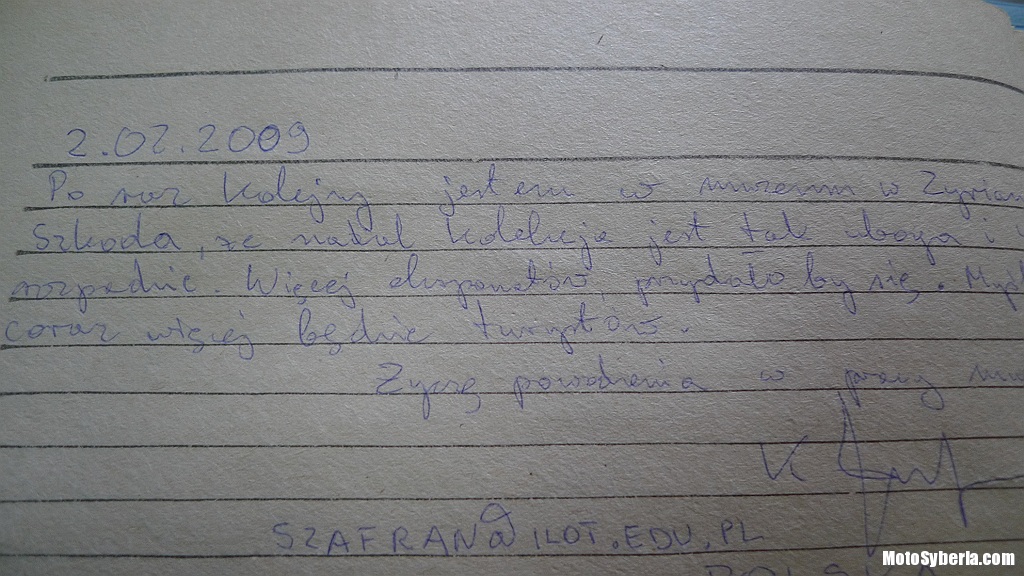 2.02.2009
Po raz kolejny jestem w muzeum w Zyrian
Szkoda, że nadal kolekcja jest tak uboga i
rozpadnie. Więcej eksponatów przydało by się. Myśl
coraz więcej będzie turystów.
Życzę powodzenia w pracy mu
K
SZAFRAN@ILOT.EDU.PL
POLSKA
MotoSyberia.com